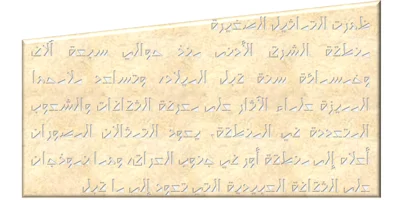 ظهرت التماثيل الصغيرة
منطقة الشرق الأدنى منذ حوالي سبعة آلاف
وخمسمائة سنة قبل الميلاد، وتساعد ملامحها
المميزة علماء الآثار على معرفة الثقافات والشعوب
المتعددة في المنطقة. يعود التمثالان المصوران
أعلاه إلى منطقة أور في جنوب العراق، وهما نموذجان
على الثقافة العبيدية التي تعود إلى ما قبل